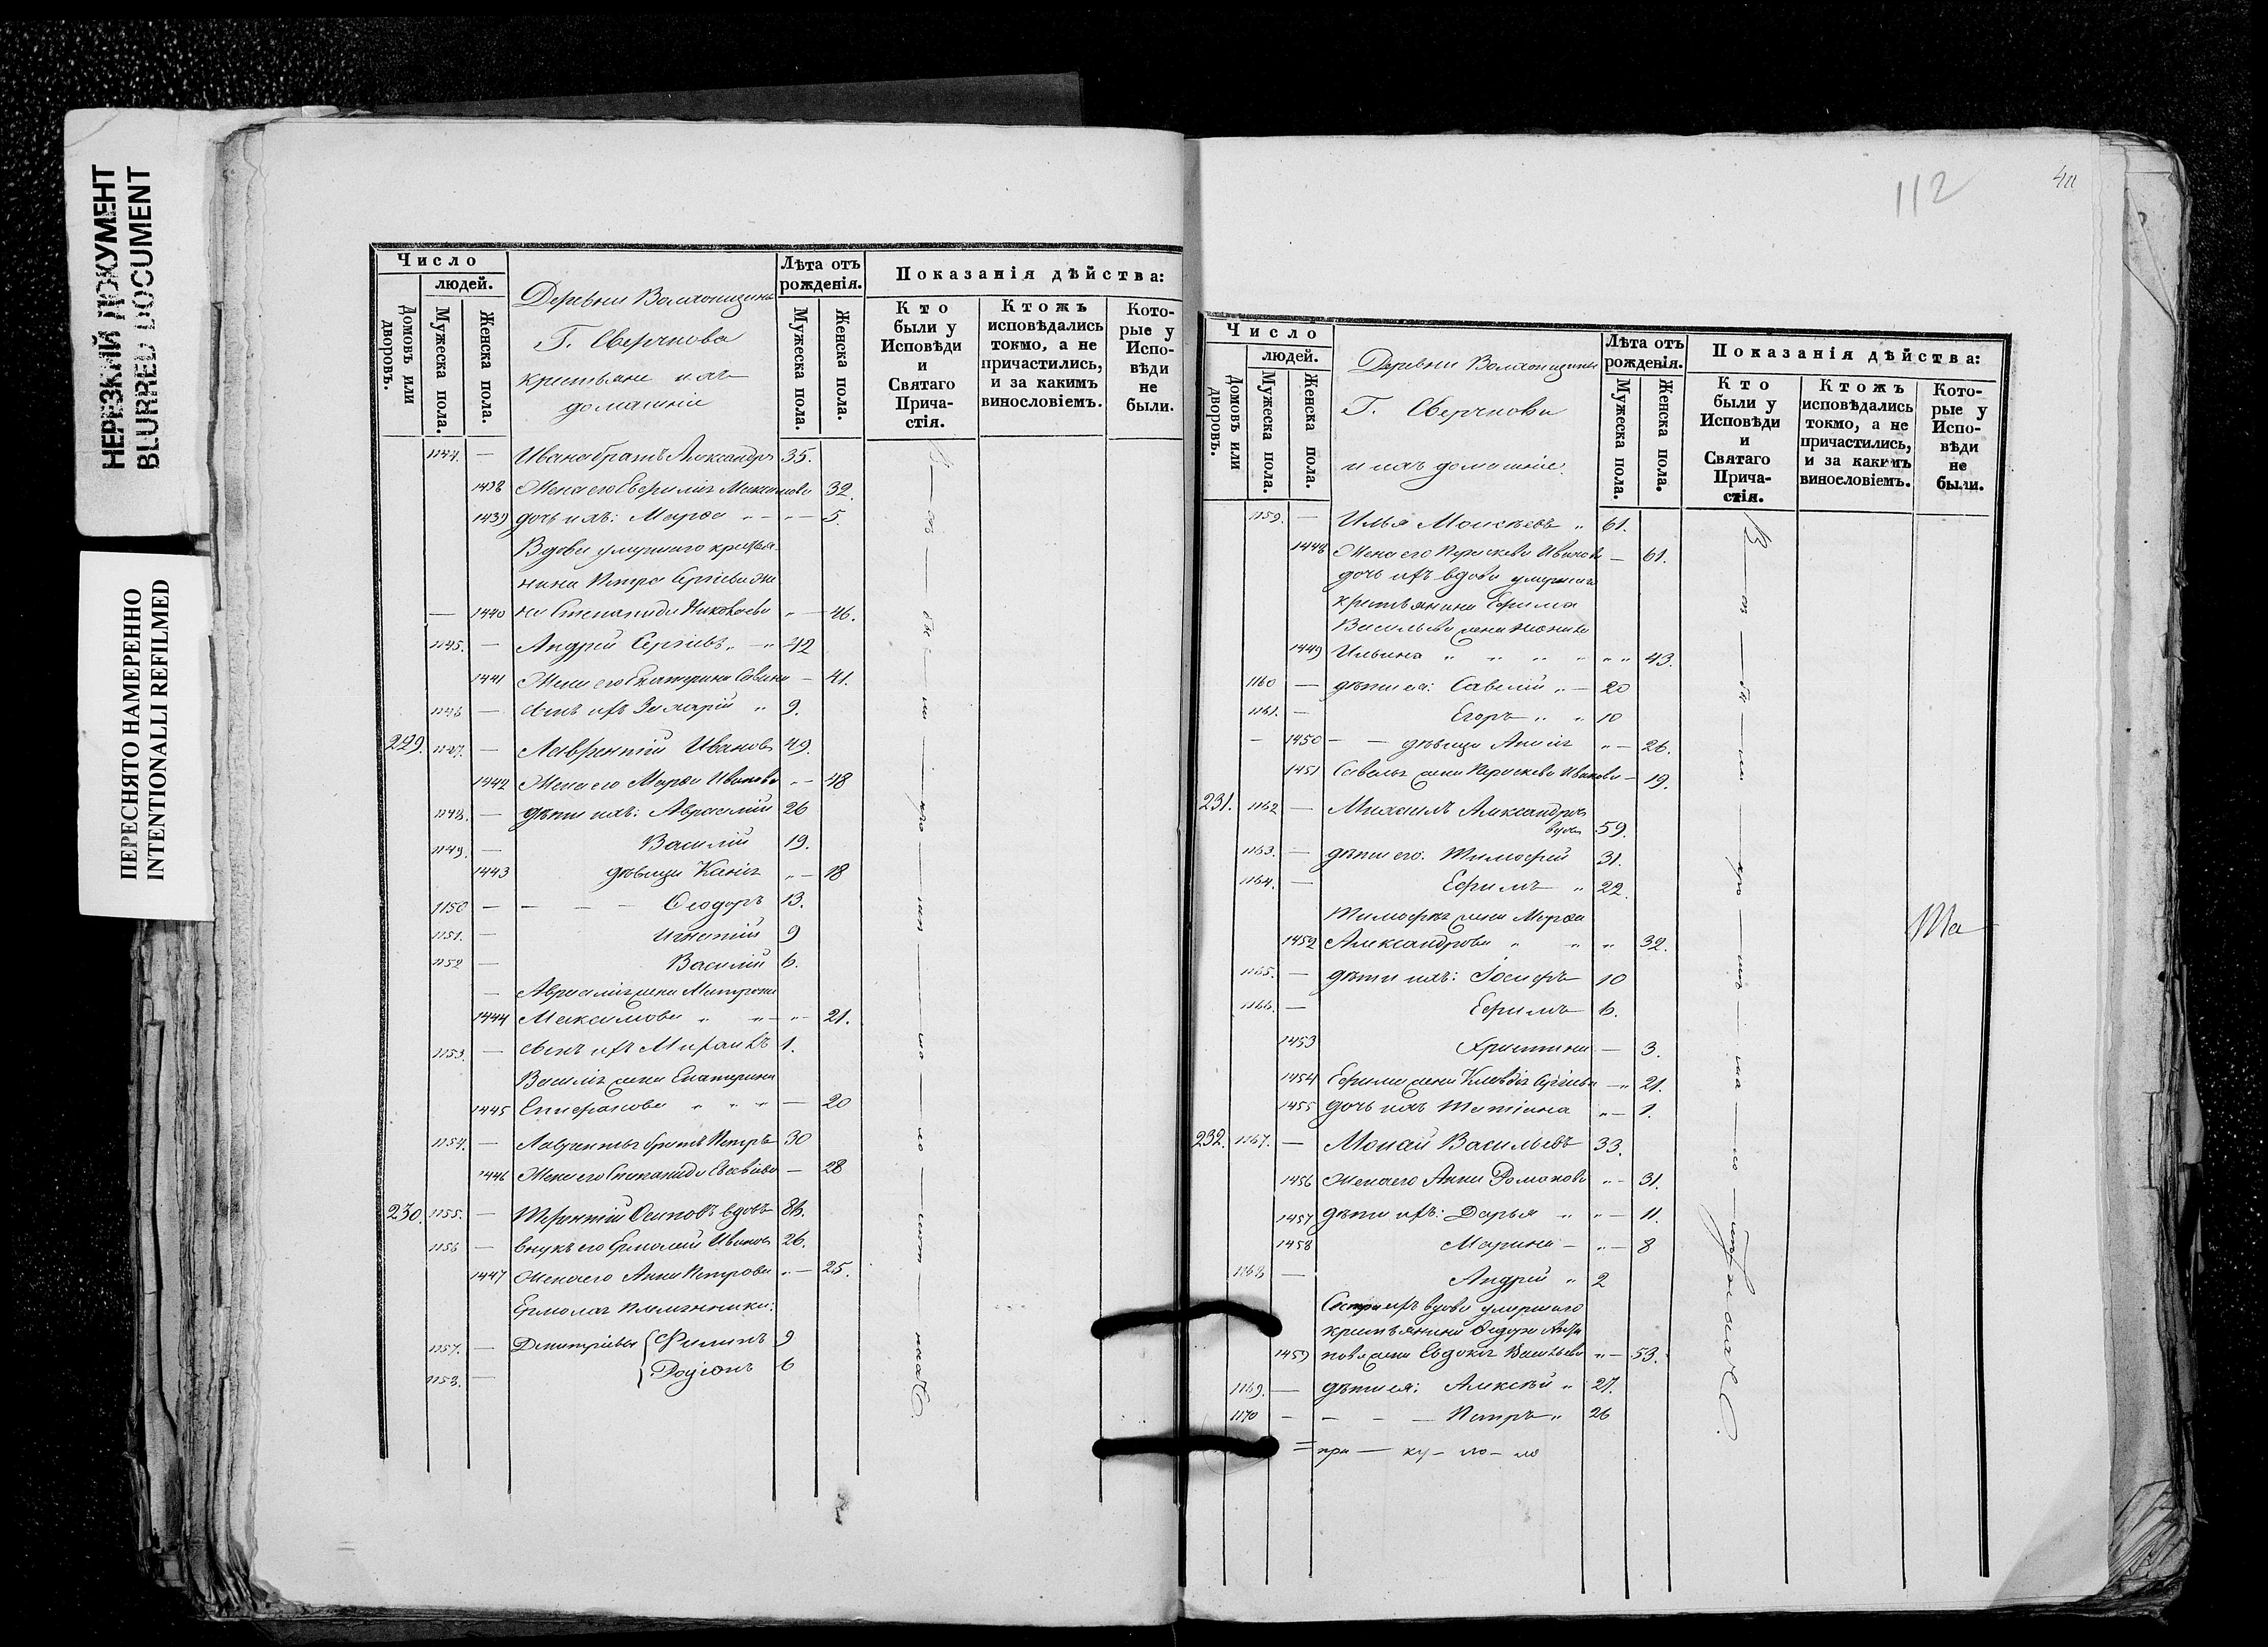 НЕРЕЗКИЙ ДОКУМЕНТ
BLURRED DOCUMENT
ПЕРЕСНЯТО НАМЕРЕННО
INTENTIONALLI REFILMED
Число
людей.
Домовъ или дворовъ.
Мужеска пола.
Женска пола.
Деревни
Г. Сверчкова
крестьяне ихъ
домашніе
Лѣта отъ рожденія.
Мужеска пола.
Женска пола.
Показанія дѣйства:
Кто были у Исповѣди и Святаго Причастія.
Ктожъ исповѣдались токмо, а не причастились, и за какимъ винословіемъ.
Которые у Исповѣди не были.
1144. — Ивана братъ Александръ 35.
1438 Жена его 32.
1439 дочь ихъ: Марѳа 5.
Вдова умершаго крестья-
нина Петра Сергіева же
1440 на Степанида Николаева 46.
1145. — Андрей Сергіевъ 42
1441 Жена его Екатерина Савина — 41.
1146 — сынъ ихъ 9.
229. 1147. — Лаврентій Ивановъ 49.
1442 Жена его Марѳа Иванова 48
1148. — дѣти ихъ: 26
1149. — Василій 19.
1443 дѣвица Ксенія 18
1150 — Ѳеодоръ 13.
1151. — Игнатій 9
1152 — Василій 6.
жена Матрона
1444 Максимова 21.
1153. — сынъ ихъ 1.
Василія жена Екатерина
1445 Епифанова — 20
1154. — Лаврентья братъ Петръ 30
1446 Жена его Степанида — 28
230. 1155. — Терентій Осиповъ вдовъ
1156 — внукъ его Ермолай Ивановъ 26.
1447 Жена его Анна Петрова 25.
Ермолая племянники:
1157. — Дмитріевы Филипъ 9
1158. — Родіонъ 6
112
Число
людей.
Домовъ или дворовъ.
Мужеска пола.
Женска пола.
Деревни
Г. Сверчкова
и ихъ домашніе.
Лѣта отъ рожденія.
Мужеска пола.
Женска пола.
Показанія дѣйства:
Кто были у Исповѣди и Святаго Причастія.
Ктожъ исповѣдались токмо, а не причастились, и за какимъ винословіемъ.
Которые у Исповѣди не были.
1159. — Илья Моисѣевъ 61.
1448 Жена его Параскева Иванова — 61.
дочь ихъ вдова умершаго
крестьянина Ефима
Васильева жена
1449 Ильина 43.
1160 — дѣти ея: Савелій 20
1161. — Егоръ 10
1450 — дѣвица 26.
1451 Савелья жена Параскева Иванова — 19.
231. 1162 — Михаилъ Александровъ
вдовъ 59.
1163. — дѣти его. Тимофей 31.
1164. — Ефимъ 22.
Тимофея жена Марѳа
1452 Александрова 32.
1165. — дѣти ихъ: Іосифъ 10
1166. — Ефимъ 6.
1453 Христина — 3.
1454 Ефима жена Клавдія Сергіева 21.
1455 дочь ихъ Татіана 1.
232. 1167. — Васильевъ 33.
1456 Жена его Анна Романова 31.
1457 дѣти ихъ: Дарья 11.
1458 Марина 8
1168 — Андрей 2
Сестра ихъ вдова умершаго
крестьянина Ѳедора
1459 жена Евдокія Васильева 53.
1169. — дѣти ея: Алексѣй 27.
1170 — Петръ 26